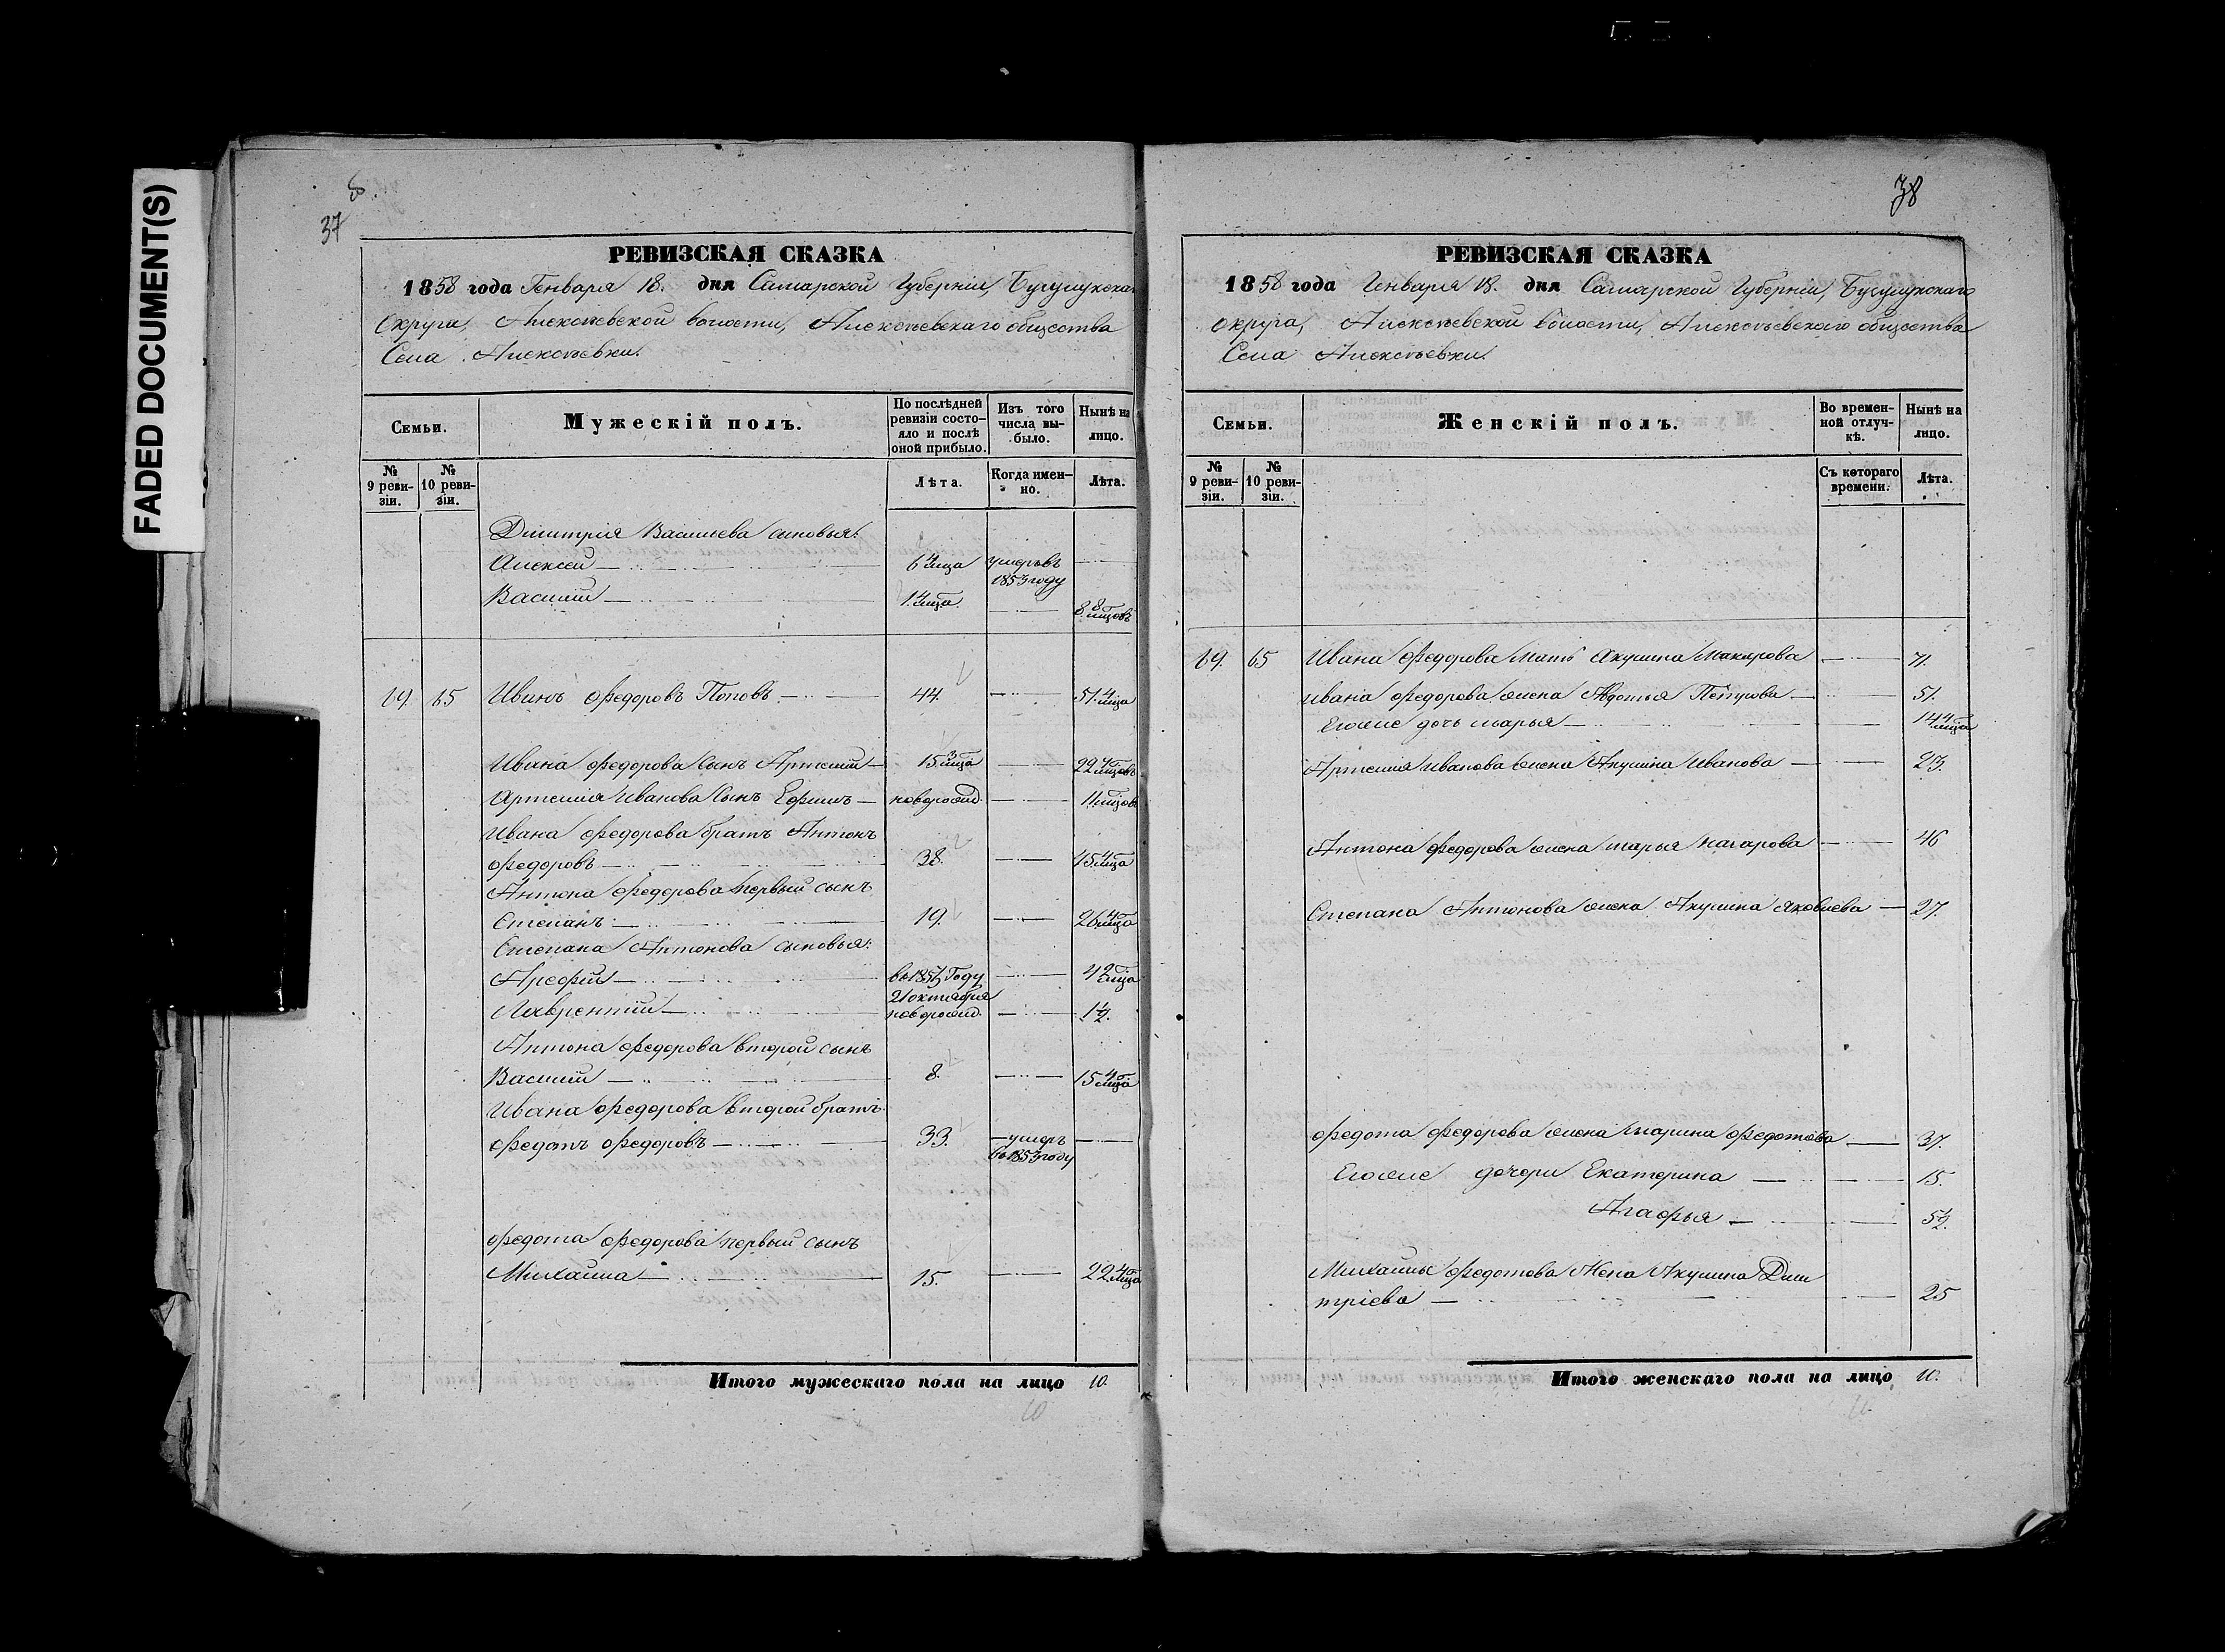 FADED DOCUMENT(S)
8.
37
РЕВИЗСКАЯ СКАЗКА
1858 года Генваря 18. дня Самарской Губерніи, Бузулукскаго
Округа, Алексѣевской волости, Алексѣевскаго общества
Села Алексѣевки.
Семьи.
Мужескій полъ.
По послѣдней ревизіи состо-
яло и послѣ
оной прибыло.
Изъ того
числа вы-
было.
Нынѣ на
лицо.
№
9 реви-
зіи.
№
10 реви-
зіи.
Лѣта.
Когда имен-
но.
Лѣта.
Дмитрія Васильева сыновья:
Алексей — умеръ въ
1853 году
Василий —
69. 65 Иванъ Федоровъ Поповъ — 44. — 51. 4 мца
Ивана Федорова сынъ Артемий — 15. 3 мца — 22. 4 мцовъ
Артемия Иванова сынъ Ефимъ — новорожд. — 11 мцовъ
Ивана Федорова братъ Антонъ
Федоровъ — 38. — 45. 4 мца
Антона Федорова первый сынъ
Степанъ — 19. — 26. 4 мца
Степана Антонова сыновья:
Арефий — — 4 2 мца
21 октября
Лаврентий — новорожд. — 1½.
Антона Федорова второй сынъ
Василий — 8. — 15. 4 мца
Ивана Федорова второй братъ
Федотъ Федоровъ — 33. — умеръ —
въ 1853 году
Федота Федорова первый сынъ
Михаила — 15. — 22. 4 мца
Итого мужескаго пола на лицо 10.
10
38
РЕВИЗСКАЯ СКАЗКА
1858 года Генваря 18. дня Самарской Губерніи, Бузулукскаго
округа, Алексѣевской волости, Алексѣевскаго общества
Села Алексѣевки.
Семьи.
Женскій полъ.
Во времен-
ной отлуч-
кѣ.
Нынѣ на
лицо.
№
9 реви-
зіи.
№
10 реви-
зіи.
Съ котораго
времени.
Лѣта.
69. 65 Ивана Федорова мать Акулина Макарова — 71.
Ивана Федорова жена Авдотья Петрова — 51.
Егоже дочь Марья — 14. 4 мца
Артемия Иванова жена Акулина Иванова — 23.
Антона Федорова жена Марья — 46
Степана Антонова жена Акулина Яковлева — 27.
Федота Федорова жена Марина Федотова — 37.
Егоже дочери Екатерина — 15.
Агафья — 5½.
Михайлы Федотова жена Акулина Дми
тріева — 25
Итого женскаго пола на лицо 10.